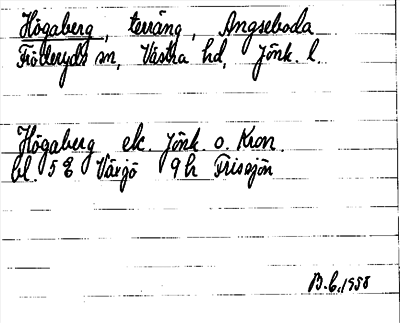 Högaberg, terräng, Angseboda
Frölleryds sn, Västra hd, Jönk. l.
Högaberg ek. Jönk. o. Kron.
bl. 5 E Växjö 9h Frissjön
B.C. 1958